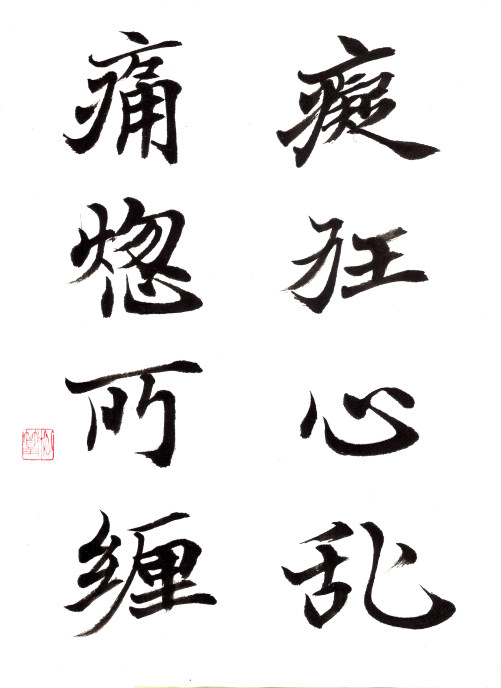 癡狂心乱
痛惚所纏